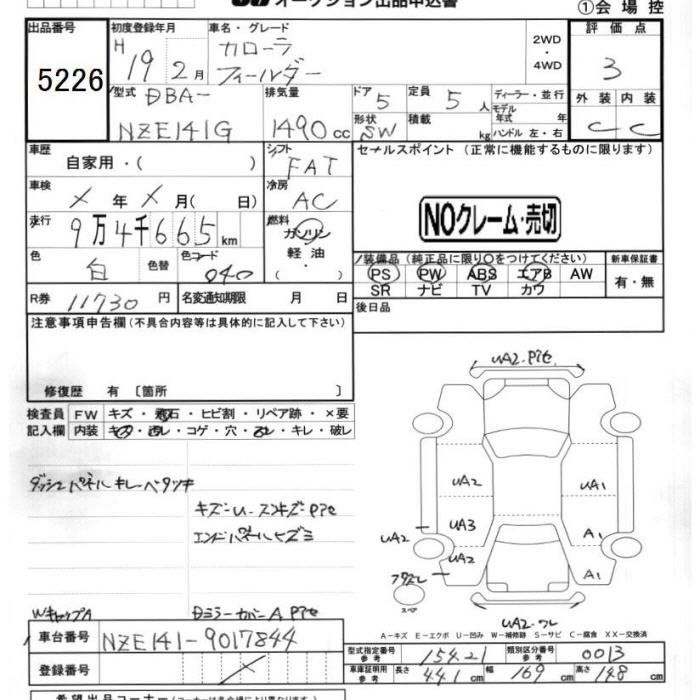 オークション出品申込書
①会場控
出品番号
5226
初度登録年月
H 19 2月
車名・グレード
カローラ
フィールダー
2WD
・
4WD
評価点
3
型式 DBA-
NZE141G
排気量
1490cc
ドア 5
形状 SW
定員 5 人
積載 kg
ディーラー・並行
モデル年式 年
ハンドル 左・右
外装 内装
C C
車歴
自家用・( )
シフト
FAT
車検
X年X月( 日)
冷房
AC
走行
9万4千665km
燃料
ガソリン
軽油
色
白
色替
色コード
040
R券 11730円
名変通知期限 月 日
セールスポイント (正常に機能するものに限ります)
NOクレーム・売切
装備品(純正品に限り○をつけてください)
PS PW ABS エアB AW
SR ナビ TV カワ
新車保証書
有・無
後日品
注意事項申告欄(不具合内容等は具体的に記入して下さい)
修復歴 有〔箇所 〕
検査員
記入欄
FW キズ・飛石・ヒビ割・リペア跡・×要
内装 キズ・汚レ・コゲ・穴・スレ・キレ・破レ
キズーU
エンドパネルヒズミ
WキャップA
UA2
UA3
UA2
UA2
UA1
A1
A1
UA2
スペア
A-キズ E-エクボ U-凹み W-補修跡 S-サビ C-腐食 XX-交換済
車台番号 NZE141-9017844
登録番号
型式指定番号
参考
15421
類別区分番号
参考
0013
車庫証明用
参考
長さ 441cm 幅 169cm 高さ 148cm
希望出品コーナー